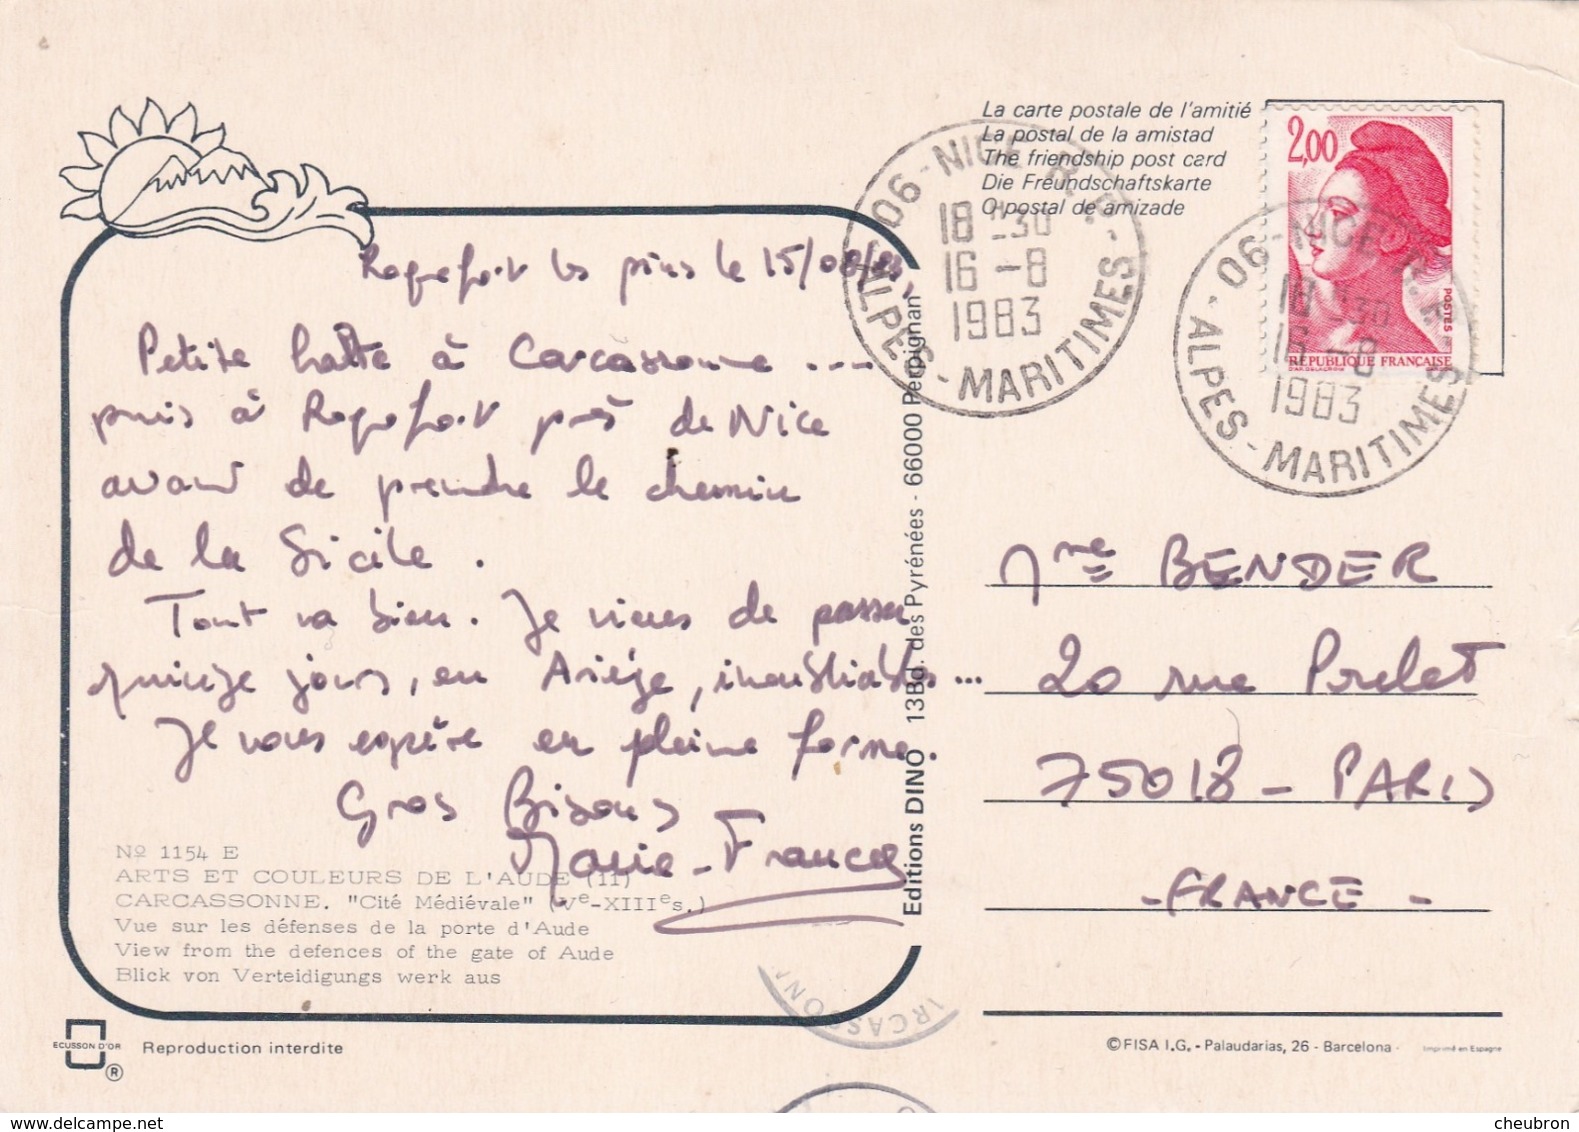 La carte postale de l'amitié
La postal de la amistad
The friendship post card
Die Freundschaftskarte
O postal de amizade
2,00
POSTES
RÉPUBLIQUE FRANÇAISE
06 - NICE R.P.
18 H 30
16 - 8
1983
ALPES - MARITIMES
06 - NICE R.P.
18 H 30
16 - 8
1983
ALPES - MARITIMES
Roquefort les pins le 15/08/83,
Petite halte à Carcassonne ...
puis à Roquefort près de Nice
avant de prendre le chemin
de la Sicile.
Tout va bien. Je viens de passer
quinze jours, en Ariège, inoubliables...
Je vous espère en pleine forme.
Gros Bisous
Marie-France
Mme BENDER
20 rue
75018 - PARIS
- FRANCE -
Editions DINO 13Bd. des Pyrénées - 66000 Perpignan
Nº 1154 E
ARTS ET COULEURS DE L'AUDE (11)
CARCASSONNE. "Cité Médiévale" (Ve-XIIIes.)
Vue sur les défenses de la porte d'Aude
View from the defences of the gate of Aude
Blick von Verteidigungs werk aus
ECUSSON D'OR
®
Reproduction interdite
©FISA I.G. - Palaudarias, 26 - Barcelona
Imprimé en Espagne
ARCASSON
cheubron
www.delcampe.net